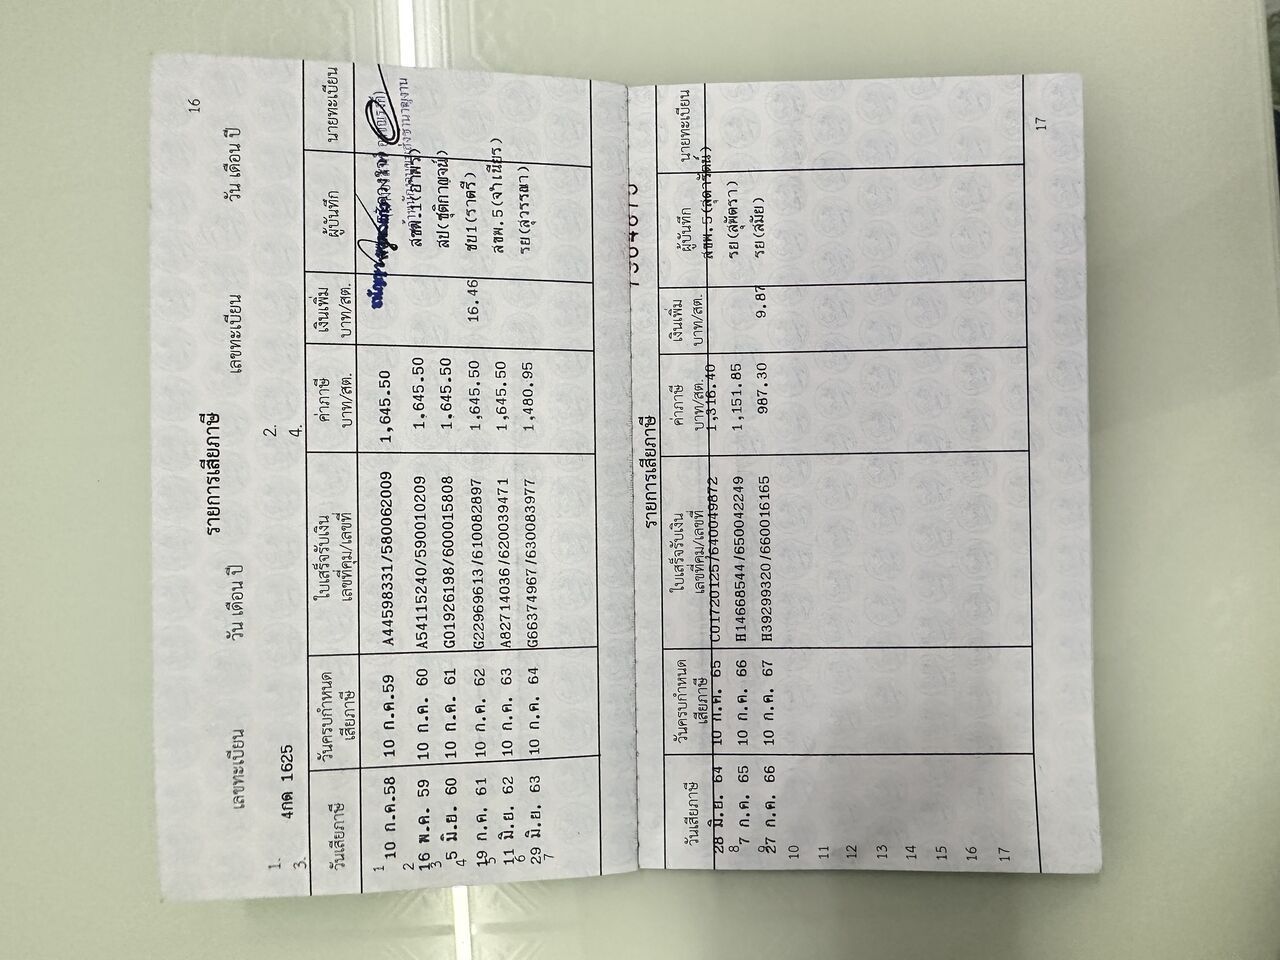 16
เลขทะเบียน วัน เดือน ปี เลขทะเบียน วัน เดือน ปี
รายการเสียภาษี
1. 4กด 1625 2.
3. 4.
วันเสียภาษี วันครบกำหนดเสียภาษี ใบเสร็จรับเงิน เลขที่คุม/เลขที่ ค่าภาษี บาท/สต. เงินเพิ่ม บาท/สต. ผู้บันทึก นายทะเบียน
1 10 ก.ค.58 10 ก.ค.59 A44598331/580062009 1,645.50
2 16 พ.ค. 59 10 ก.ค. 60 A54115240/590010209 1,645.50
3 5 มิ.ย. 60 10 ก.ค. 61 G01926198/600015808 1,645.50 สป(ชุติกาญจน์)
4 19 ก.ค. 61 10 ก.ค. 62 G22969613/610082897 1,645.50 16.46 ชบ1(ราตรี)
5 11 มิ.ย. 62 10 ก.ค. 63 A82714036/620039471 1,645.50 สขพ.5(จำเนียร)
6 29 มิ.ย. 63 10 ก.ค. 64 G66374967/630083977 1,480.95 รย(สุวรรณา)
7
รายการเสียภาษี
วันเสียภาษี วันครบกำหนดเสียภาษี ใบเสร็จรับเงิน เลขที่คุม/เลขที่ ค่าภาษี บาท/สต. เงินเพิ่ม บาท/สต. ผู้บันทึก นายทะเบียน
28 มิ.ย. 64 10 ก.ค. 65 C01720125/640049872 1,316.40 สขพ.5(สุดารัตน์)
8 7 ก.ค. 65 10 ก.ค. 66 H14668544/650042249 1,151.85 รย(สุพัตรา)
9 27 ก.ค. 66 10 ก.ค. 67 H39299320/660016165 987.30 9.87 รย(สมัย)
10
11
12
13
14
15
16
17
17